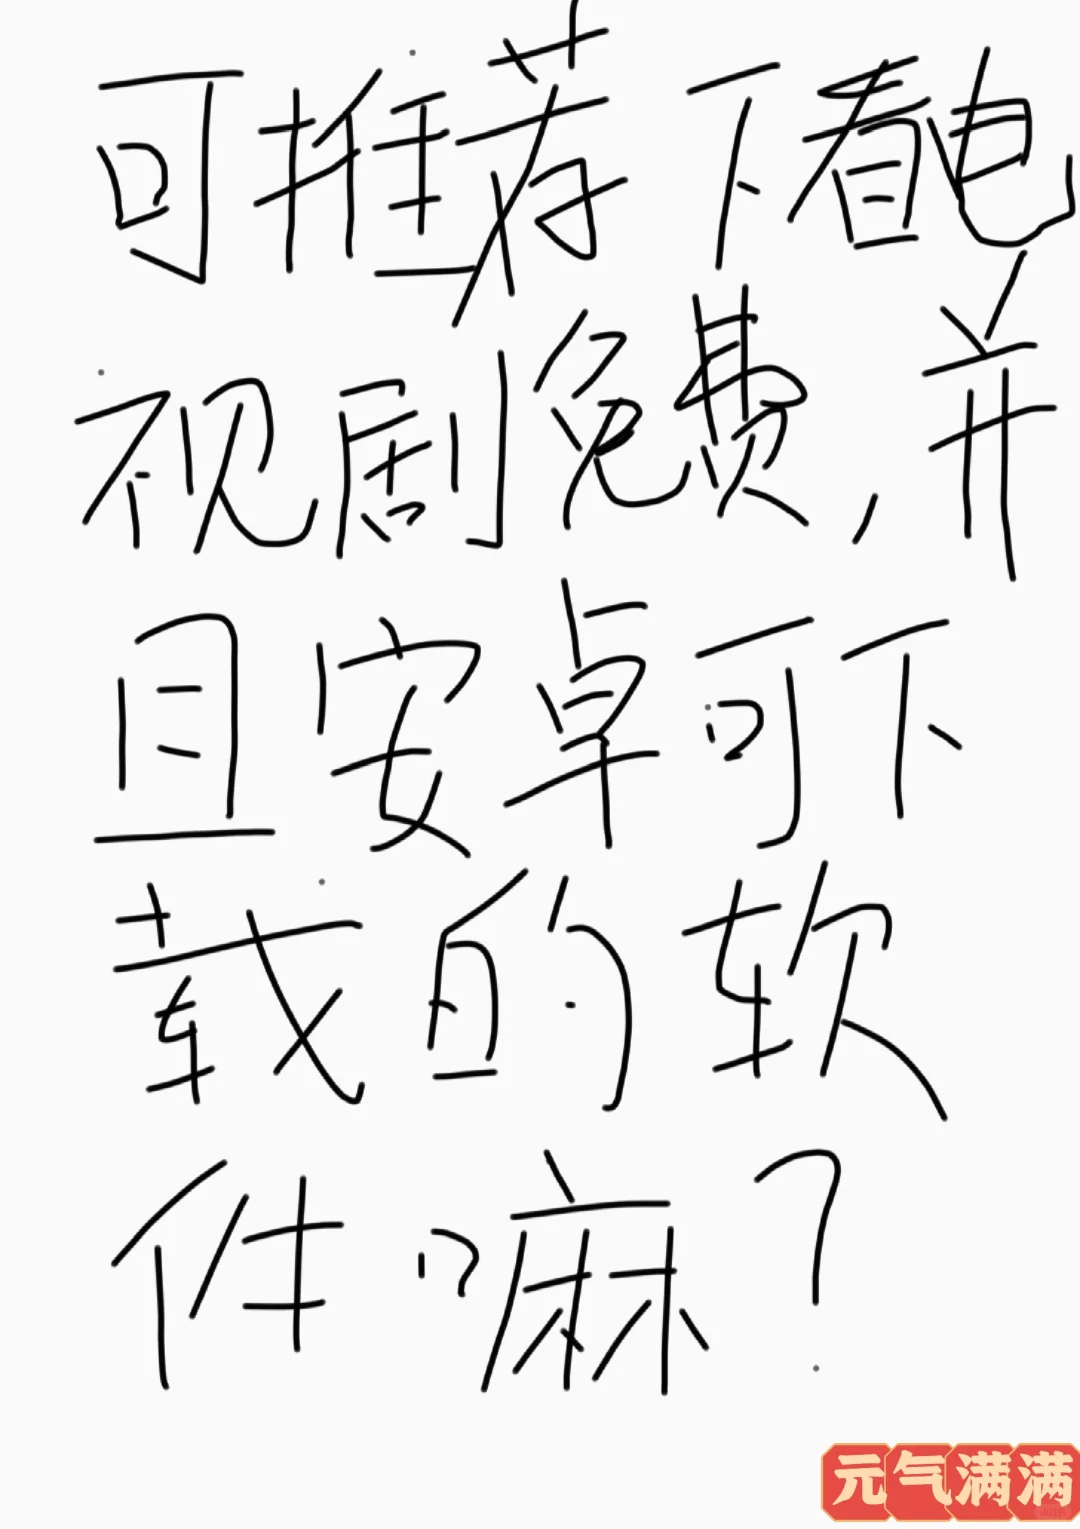 可推荐下看电
视剧免费,并
且安卓可下
载的软
件嘛?
元气满满